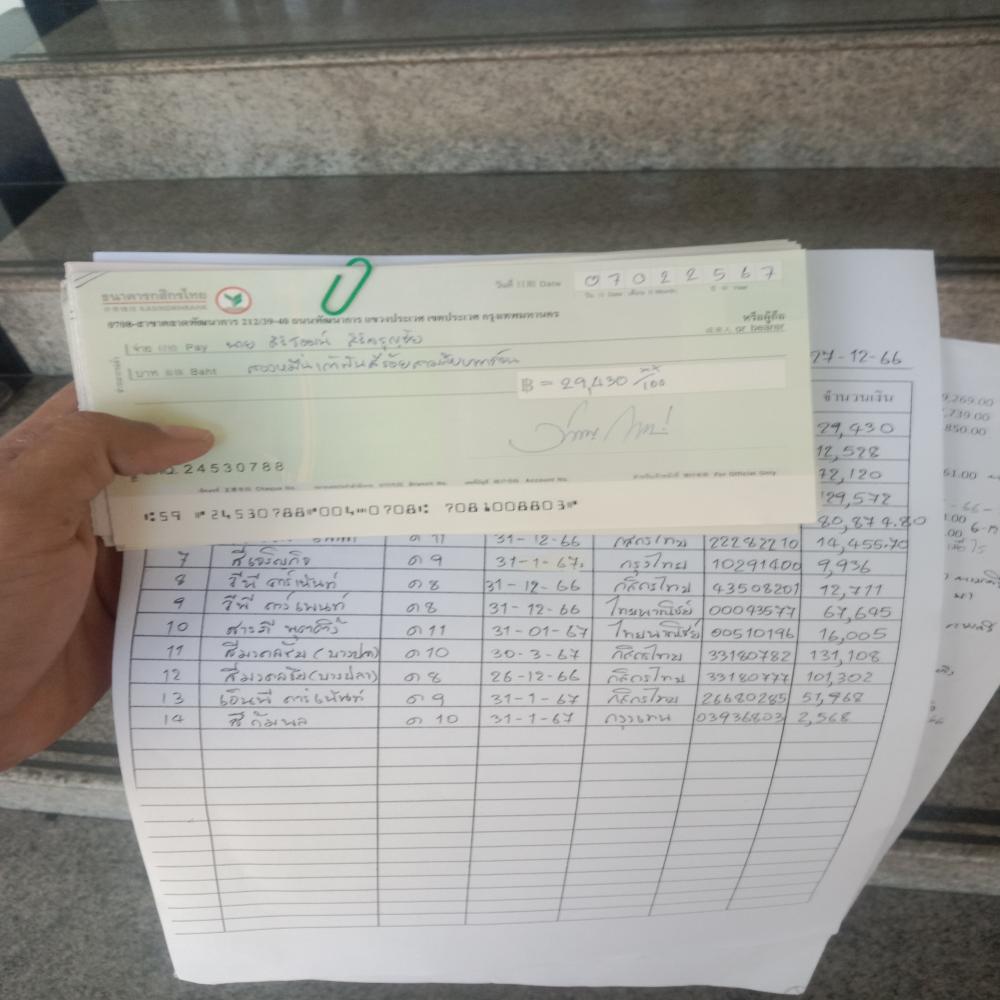 ธนาคารกสิกรไทย
KASIKORNBANK
วันที่ Date 07022567
0708-สาขาตลาดพัฒนาการ 212/39-40 ถนนพัฒนาการ แขวงประเวศ เขตประเวศ กรุงเทพมหานคร
หรือผู้ถือ
or bearer
จ่าย Pay นาย
บาท Baht สองหมื่นเก้าพันสี่ร้อยสามสิบบาทถ้วน
฿ = 29,430 xx/100
24530788
For Official Only
59 24530788 004 0708 7081008803
27-12-66
จำนวนเงิน
29,430
12,528
72,120
129,572
80,874.80
ด 11 31-12-66 กสิกรไทย 22282210 14,455.70
7 สี่เจริญกิจ ด 9 31-1-67 กรุงไทย 10291400 9,936
8 วีพี การ์เม้นท์ ด 8 31-12-66 กสิกรไทย 43508201 12,711
9 วีพี การ์เมนท์ ด 8 31-12-66 ไทยพาณิชย์ 00093577 67,645
10 ด 11 31-01-67 ไทยพาณิชย์ 00510196 16,005
11 สีมงคลชัย (บางปลา) ด 10 30-3-67 กสิกรไทย 33180782 131,108
12 สีมงคลชัย (บางปลา) ด 8 26-12-66 กสิกรไทย 33180777 101,302
13 เอ็นพี การ์เม้นท์ ด 9 31-1-67 กสิกรไทย 26680285 51,968
14 ด 10 31-1-67 กรุงเทพ 03936803 2,568
9,269.00
,739.00
850.00
61.00